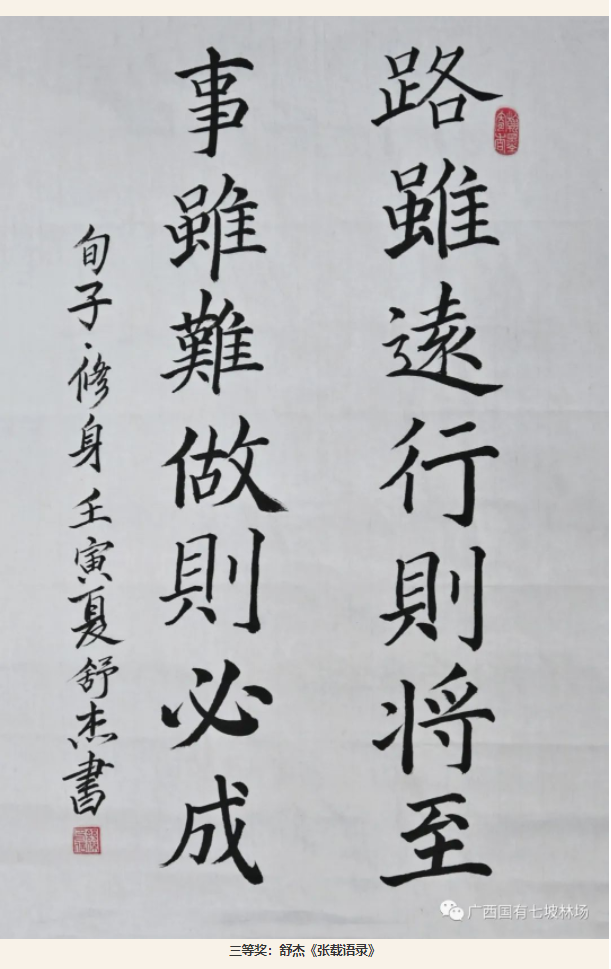 路雖遠行則将至
事雖難做則必成
旬子·修身 壬寅夏舒杰書
广西国有七坡林场
三等奖：舒杰《张载语录》